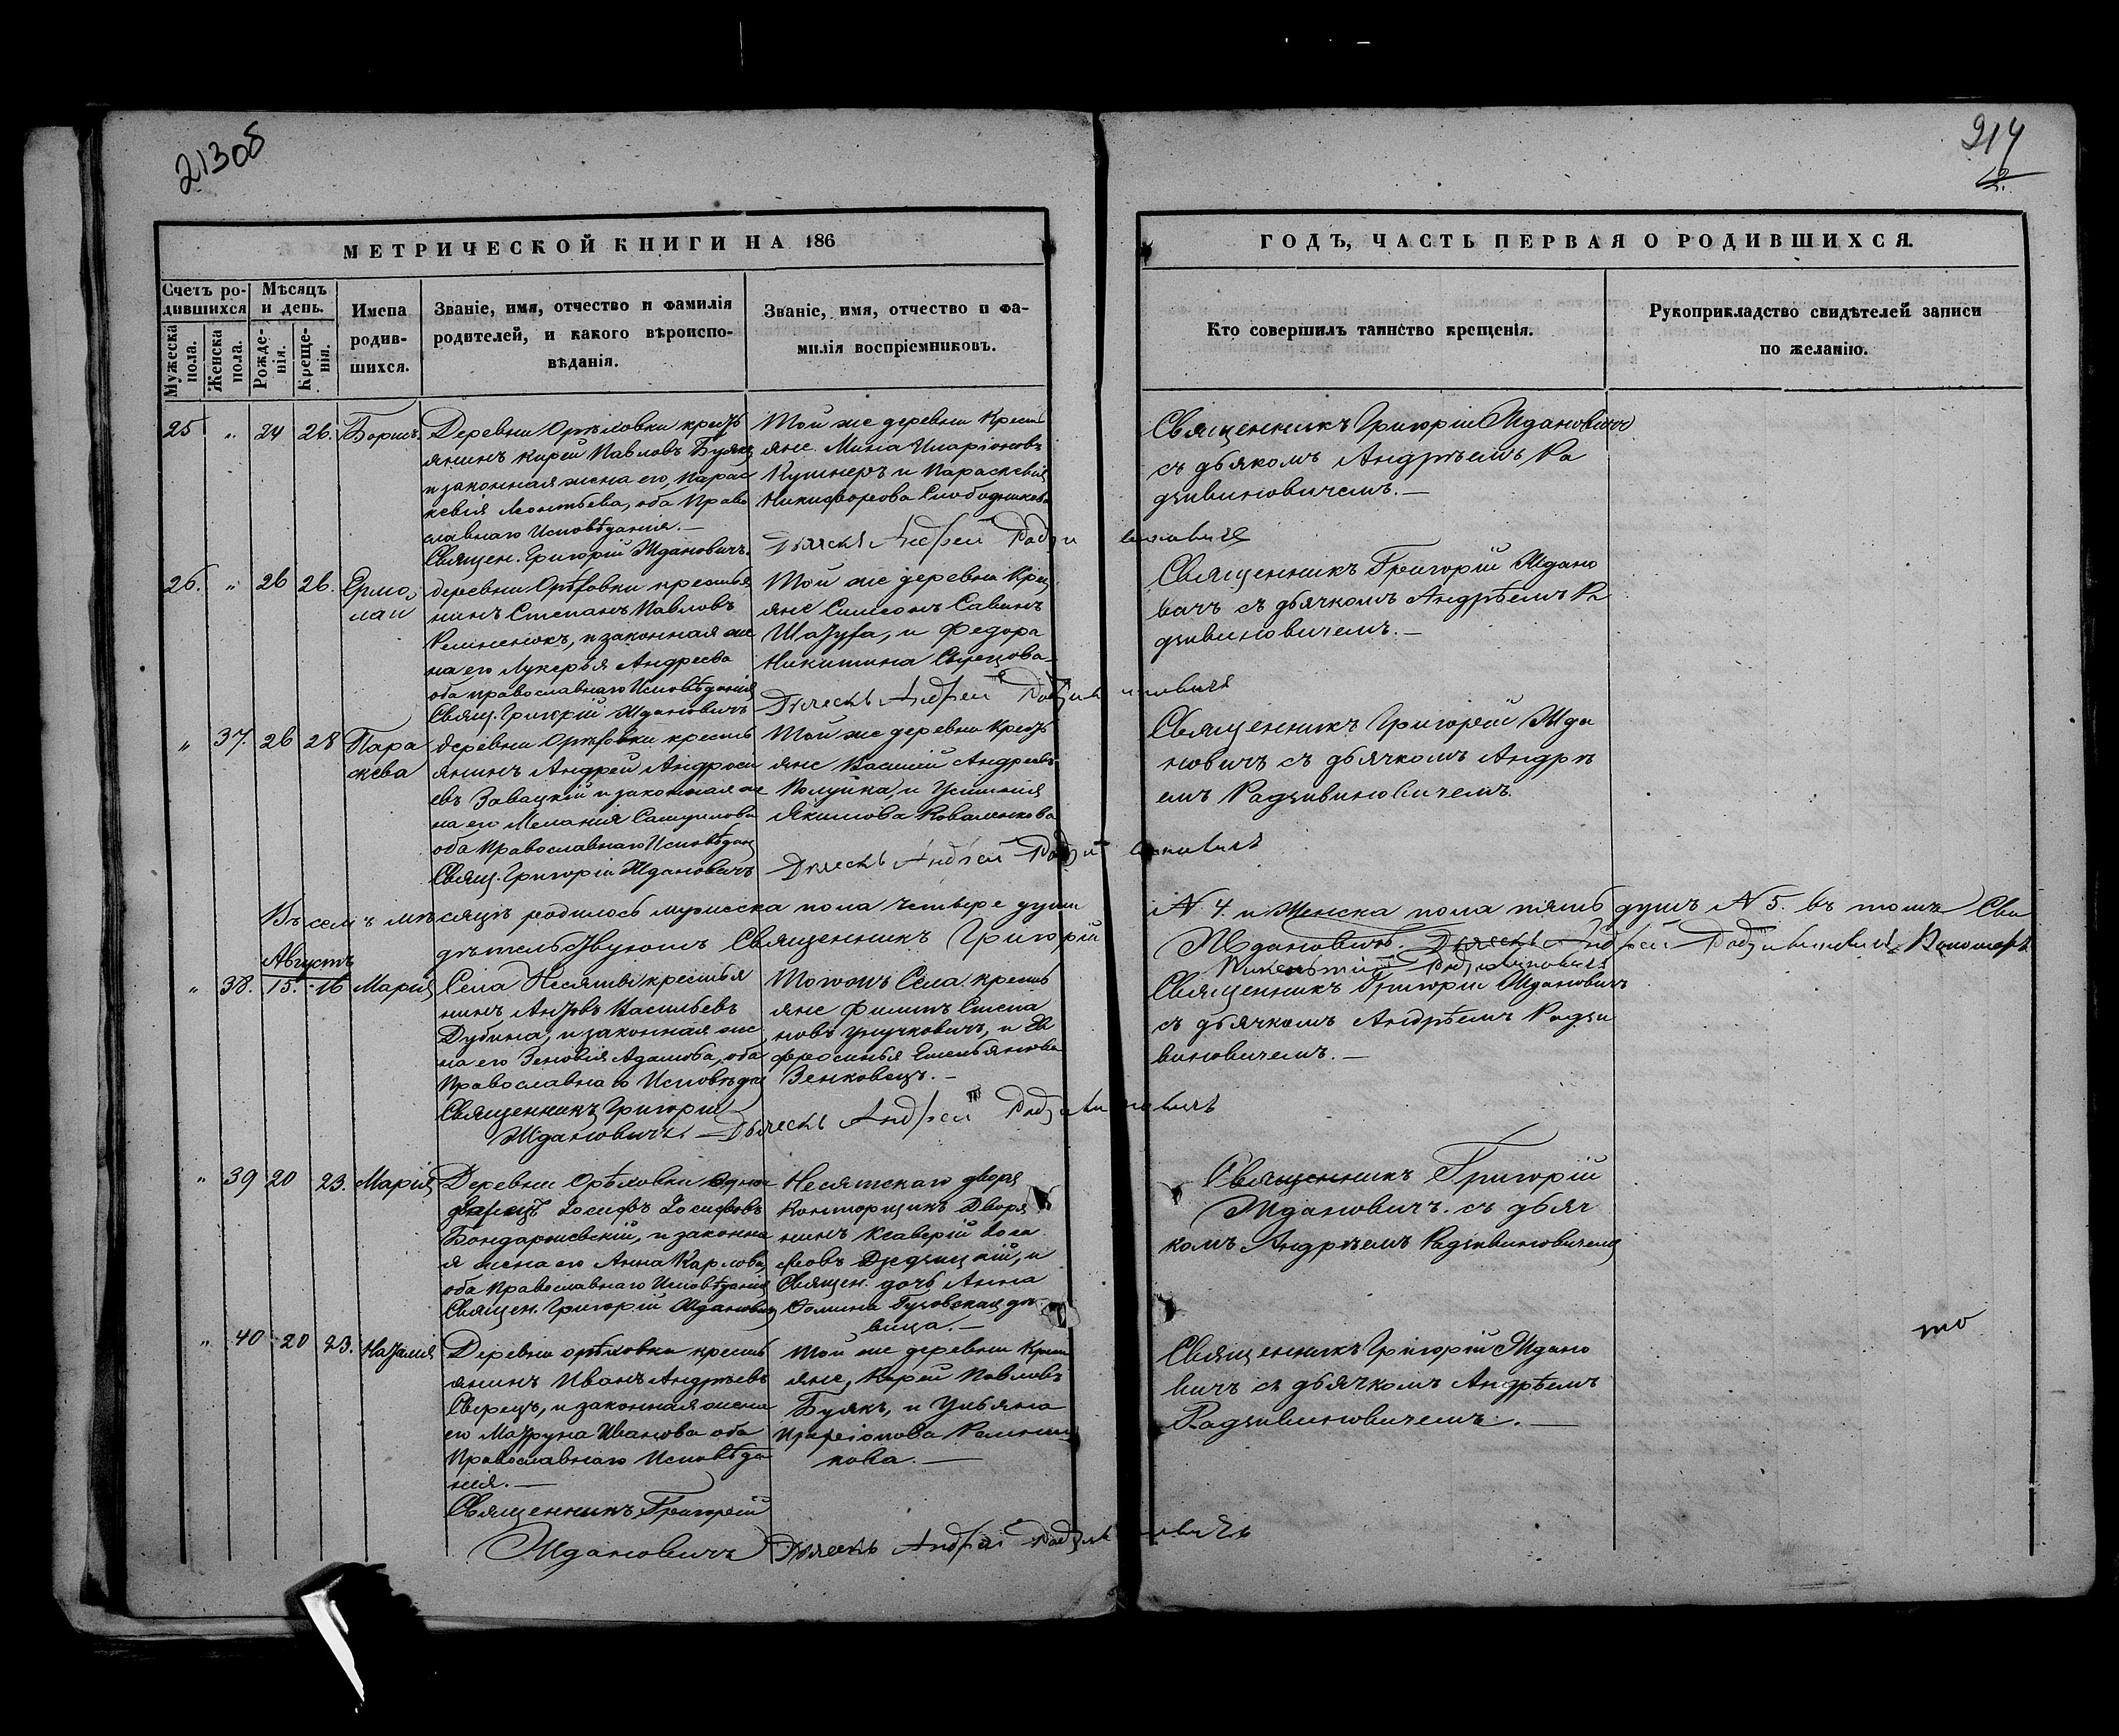 213об
214
МЕТРИЧЕСКОЙ КНИГИ НА 186
ГОДЪ, ЧАСТЬ ПЕРВАЯ О РОДИВШИХСЯ.
Счетъ ро-
дившихся
Мужеска
пола.
Женска
пола.
Мѣсяцъ
и день.
Рожде-
нія.
Креще-
нія.
Имена
родив-
шихся.
Званіе, имя, отчество и фамилія
родителей, и какого вѣроиспо-
вѣданія.
Званіе, имя, отчество и фа-
милія воспріемниковъ.
Кто совершилъ таинство крещенія.
Рукоприкладство свидѣтелей записи
по желанію.
25 " 24 26. Борисъ
Деревни Орѣховки крест
янинъ Кирей Павловъ Буякъ
и законная жена его, Парас
кевія Леонтьева, оба Право
славнаго Исповѣданія.—
Священ. Григорій Ждановичъ.
Той же деревни Крест
яне Мина Иларіоновъ
Кушнеръ и Параскевія
Никифорова Слободникова
Дьячекъ Андрей Радзивиновичъ
Священникъ Григорій Ждановичъ
съ дьякомъ Андрѣемъ Ра
дзивиновичемъ.—
26. " 26 26. Ермо
лаи
деревни Орѣховки крестья
нинъ Степанъ Павловъ
Ременюкъ, и законная же
на его Лукерья Андреева
оба православнаго Исповѣданія
Свящ. Григорій Ждановичъ
Той же деревни Крест
яне Симеонъ Савинъ
и Федора
Никитина
Дьячекъ Андрей Радзивиновичъ
Священникъ Григорій Ждано
вичъ съ дьячкомъ Андрѣемъ Ра
дзивиновичемъ.—
" 37. 26 28 Пара
скева
деревни Орѣховки кресть
янинъ Андрей Андроси
евъ Завацкій и законная же
на его Меланія Самуилова
оба Православнаго Исповѣдан
Свящ. Григорій Ждановичъ
Той же деревни Крест
яне Василій Андреевъ
и Устинія
Якимова Коваленкова
Дьячекъ Андрей Радзивиновичъ
Священникъ Григорій Жда
новичъ съ дьячкомъ Андрѣ
емъ Радзивиновичемъ.
Въ семъ мѣсяцѣ родилось мужеска пола четыре души N 4. и Женска пола пять душъ N 5. въ томъ Сви
дѣтельствуютъ Священникъ Григорій Ждановичъ. Дьячекъ Андрей Радзивиновичъ Пономарь
Викентій Радзивиновичъ
Августъ
" 38. 15. 16 Марія
Села Несятки крестья
нинъ Антонъ Васильевъ
Дубина, и законная же
на его Зеновія Адамова, оба
Православнаго Исповѣдан
Священникъ Григорій
Ждановичъ.
Тогожъ Села кресть
яне Филипъ Степа
новъ и Ев
фросинья Емельянова
Зенковецъ.—
Дьячекъ Андрей Радзивиновичъ
Священникъ Григорій Ждановичъ
съ дьячкомъ Андрѣемъ Радзи
виновичемъ.—
" 39 20 23. Марія
Деревни Орѣховки Одно
дворецъ Іосифъ Іосифовъ
Бондаржевскій, и законна
я жена его Анна Карлова,
оба Православнаго Исповѣданія
Священ. Григорій Ждановичъ
Несятскаго двора
Конторщикъ Дворя
нинъ Ксаверій Іоси
фовъ и
Священ. дочь Анна
Фомина дѣ
вица.—
Священникъ Григорій
Ждановичъ. съ дьяч
комъ Андрѣемъ Радзивиновичемъ
" 40 20 23. Наталія
Деревни орѣховки кресть
янинъ Иванъ Андрѣевъ
Сверецъ, и законная жена
его Матруна Иванова оба
Православнаго Исповѣда
нія.—
Священникъ Григорій
Ждановичъ
Той же деревни Крест
яне, Кирей Павловъ
Буякъ, и Ульяна
кова.—
Дьячекъ Андрей Радзивиновичъ
Священникъ Григорій Ждано
вичъ съ дьячкомъ Андрѣемъ
Радзивиновичемъ.—
то